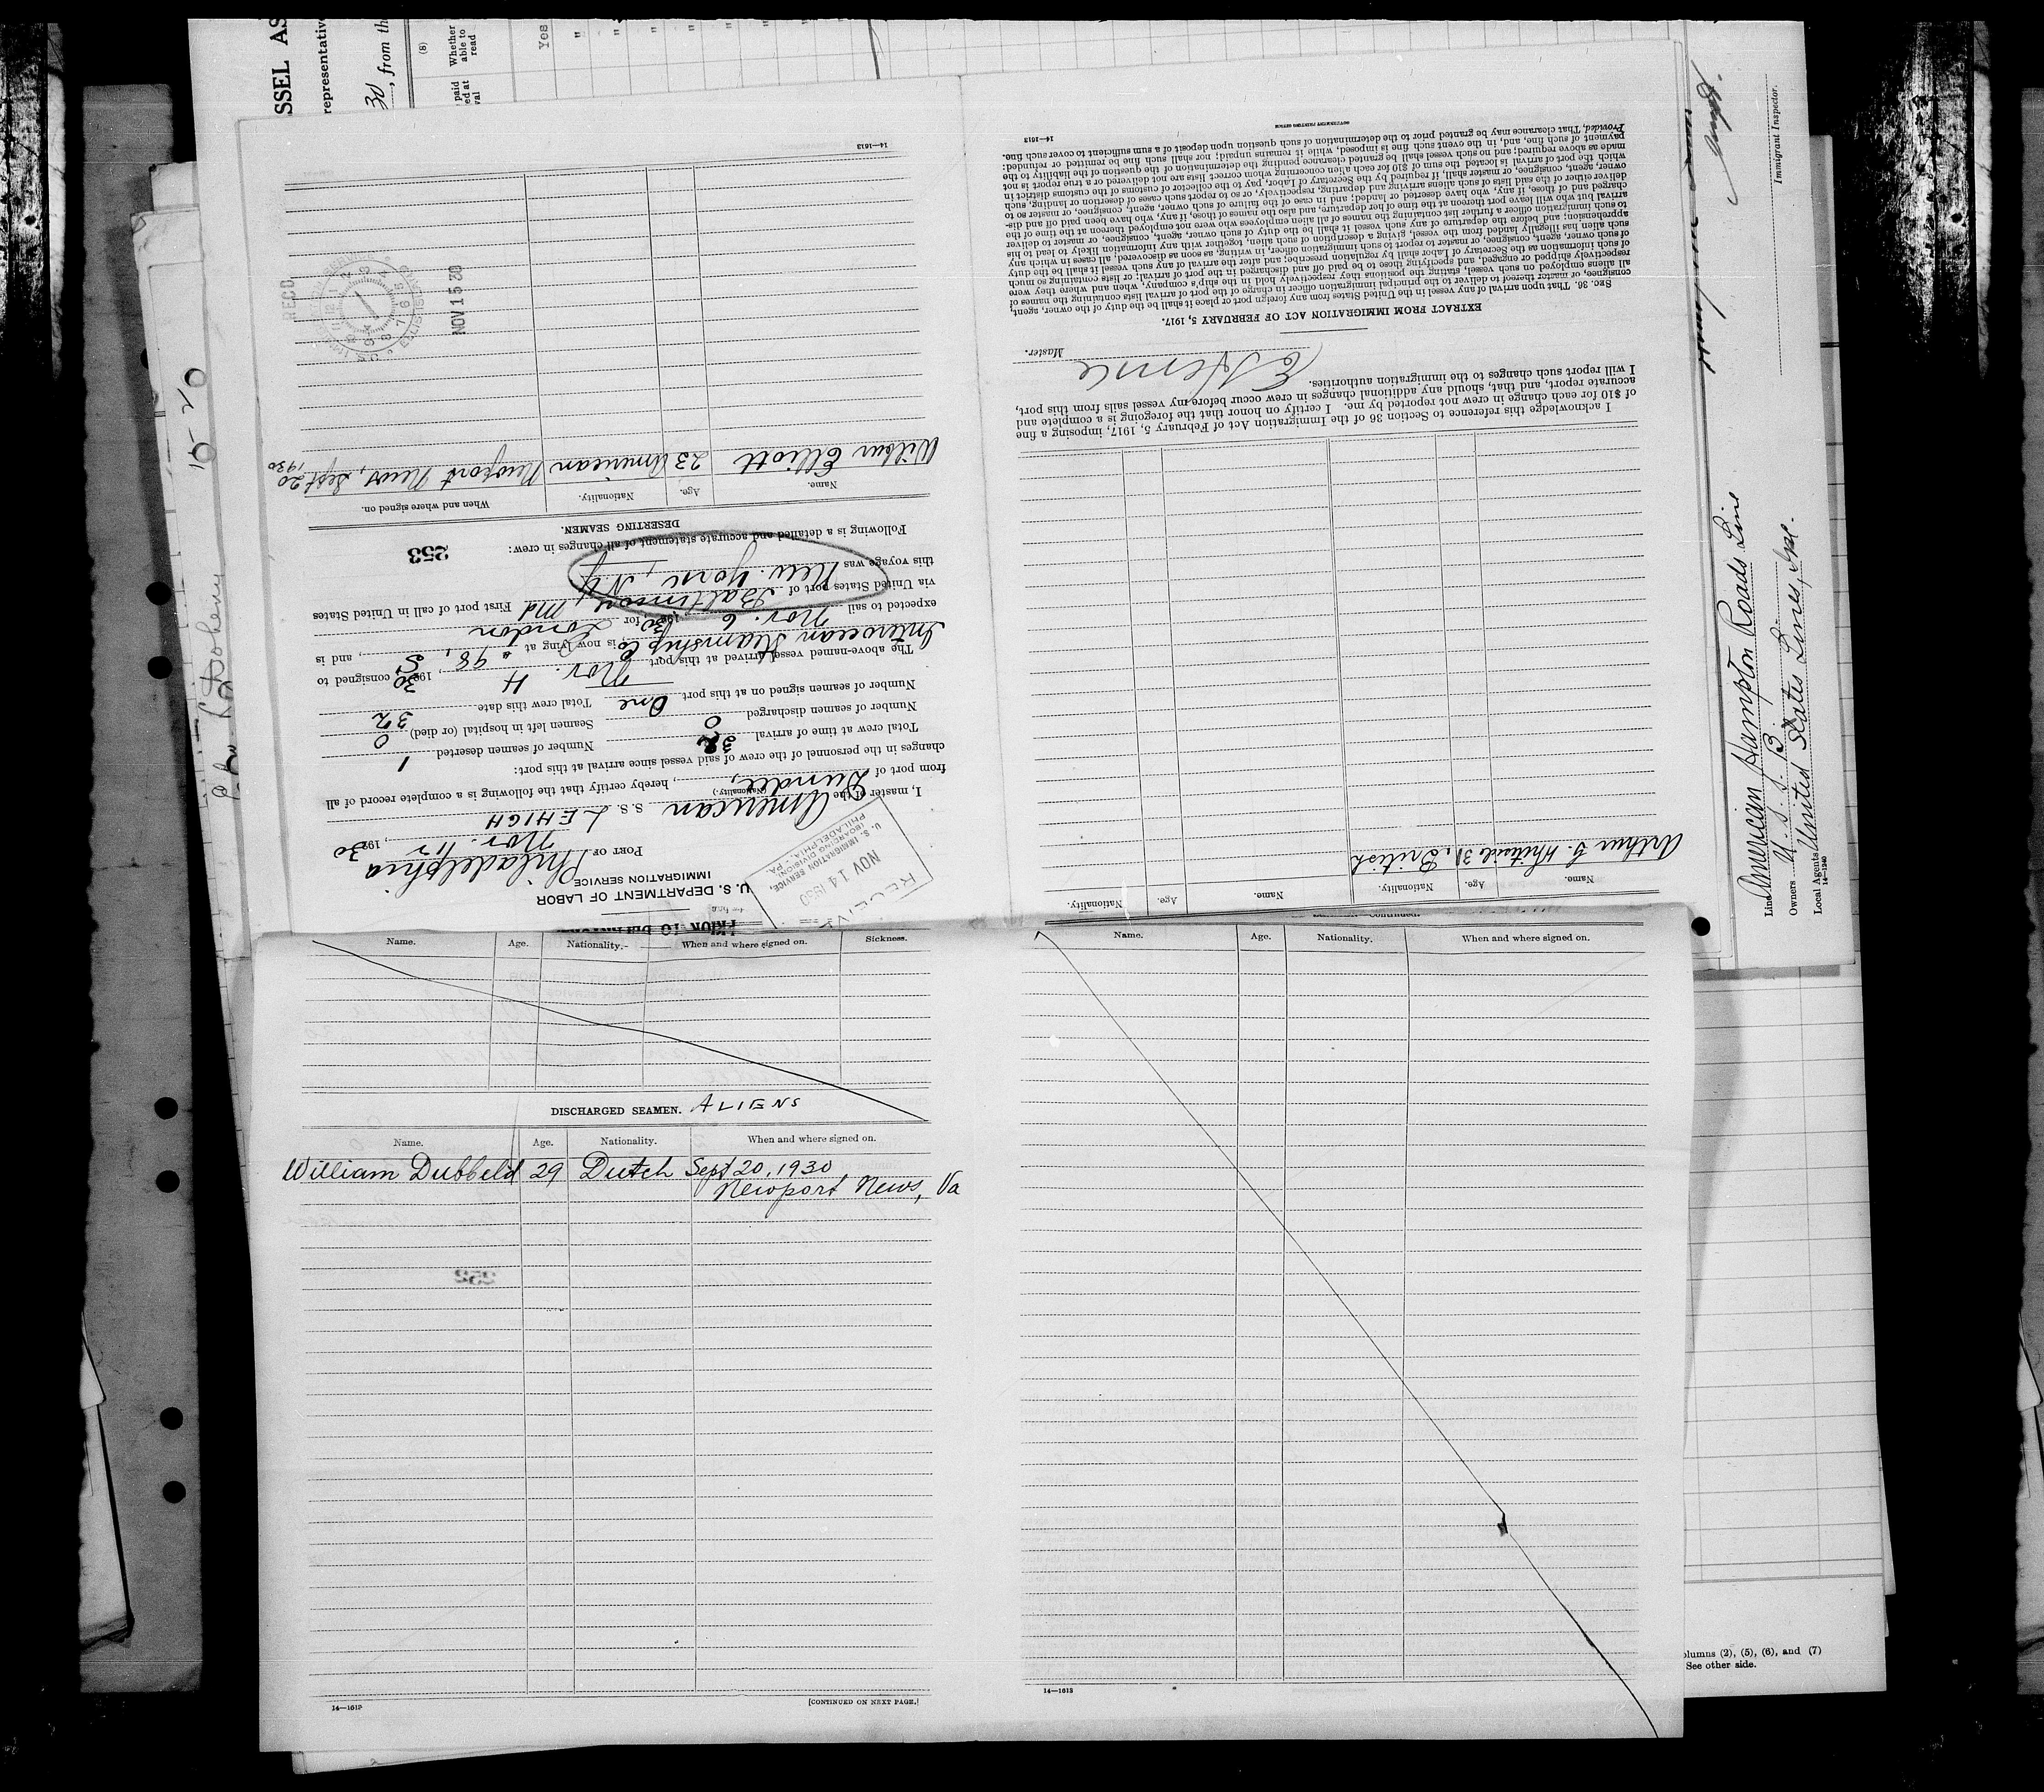 SSEL AS
representative
30, from the
(8)
Whether able to read
Yes
"
"
"
"
PRIOR TO
U. S. DEPARTMENT OF LABOR
IMMIGRATION SERVICE
PORT OF Philadelphia
Nov. 11, 1930
RECEIV
NOV 14 1930
U. S. IMMIGRATION SERVICE,
(BOARDING DIVISION)
PHILADELPHIA - PA.
I, master of the American S. S. LEHIGH
(Nationality.)
from port of Dundee, hereby certify that the following is a complete record of all
changes in the personnel of the crew of said vessel since arrival at this port:
Total crew at time of arrival 32 Number of seamen deserted 1
Number of seamen discharged 0 Seamen left in hospital (or died) 0
Number of seamen signed on at this port One Total crew this date 32
The above-named vessel arrived at this port Nov. 5, 1930 consigned to
Interocean Steamship Co, is now lying at 98, and is
expected to sail Nov. 6 1930 for London
via United States port of Baltimore, Md First port of call in United States
this voyage was New York, N.Y.
Following is a detailed and accurate statement of all changes in crew:
253
DESERTING SEAMEN.
Name. Age. Nationality. When and where signed on.
Wilbur Elliott 23 American Newport News, Sept 20
1930
RECD.
NOV 15 30
14—1613
Name. Age. Nationality. Name. Age. Nationality.
Arthur G. Whiteside 31, British
I acknowledge this reference to Section 36 of the Immigration Act of February 5, 1917, imposing a fine
of $10 for each change in crew not reported by me. I certify on honor that the foregoing is a complete and
accurate report, and that, should any additional changes in crew occur before my vessel sails from this port,
I will report such changes to the immigration authorities.
Master.
EXTRACT FROM IMMIGRATION ACT OF FEBRUARY 5, 1917.
SEC. 36. That upon arrival of any vessel in the United States from any foreign port or place it shall be the duty of the owner, agent,
consignee, or master thereof to deliver to the principal immigration officer in charge of the port of arrival lists containing the names of
all aliens employed on such vessel, stating the positions they respectively hold in the ship's company, when and where they were
respectively shipped or engaged, and specifying those to be paid off and discharged in the port of arrival; or lists containing so much
of such information as the Secretary of Labor shall by regulation prescribe; and after the arrival of any such vessel it shall be the duty
of such owner, agent, consignee, or master to report to such immigration officer, in writing, as soon as discovered, all cases in which any
such alien has illegally landed from the vessel, giving a description of such alien, together with any information likely to lead to his
apprehension; and before the departure of any such vessel it shall be the duty of such owner, agent, consignee, or master to deliver
to such immigration officer a further list containing the names of all alien employees who were not employed thereon at the time of the
arrival but who will leave port thereon at the time of her departure, and also the names of those, if any, who have been paid off and dis-
charged and of those, if any, who have deserted or landed; and in case of the failure of such owner, agent, consignee, or master so to
deliver either of the said lists of such aliens arriving and departing, respectively, or so to report such cases of desertion or landing, such
owner, agent, consignee, or master shall, if required by the Secretary of Labor, pay to the collector of customs of the customs district in
which the port of arrival is located the sum of $10 for each alien concerning whom correct lists are not delivered or a true report is not
made as above required; and no such vessel shall be granted clearance pending the determination of the question of the liability to the
payment of such fine, and, in the event such fine is imposed, while it remains unpaid; nor shall such fine be remitted or refunded:
Provided, That clearance may be granted prior to the determination of such question upon deposit of a sum sufficient to cover such fine.
14—1613
GOVERNMENT PRINTING OFFICE
Immigrant Inspector.
Line American Hampton Roads Line
Owners U. S. S. B.
Local Agents United States Lines, Inc.
14—1240
Name. Age. Nationality. When and where signed on. Sickness.
DISCHARGED SEAMEN. ALIENS
Name. Age. Nationality. When and where signed on.
William Dubbeld 29 Dutch Sept 20, 1930
Newport News, Va
14—1613
[CONTINUED ON NEXT PAGE.]
Name. Age. Nationality. When and where signed on.
14—1613
olumns (2), (5), (6), and (7)
See other side.